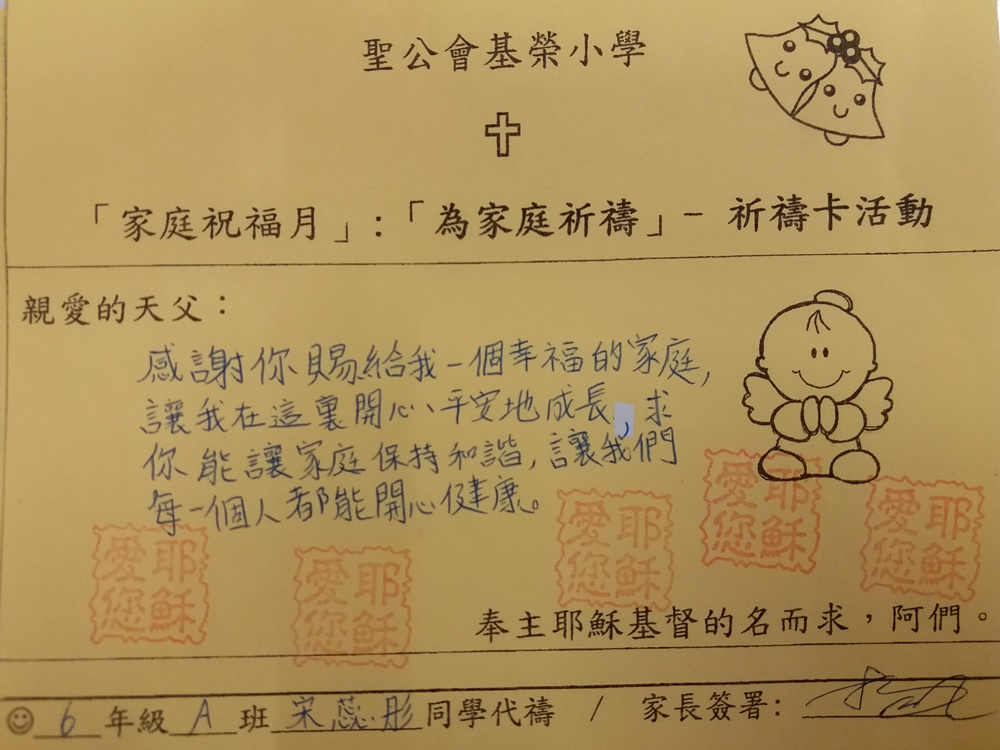 聖公會基榮小學
「家庭祝福月」:「為家庭祈禱」- 祈禱卡活動
親愛的天父：
感謝你賜給我一個幸福的家庭,
讓我在這裏開心、平安地成長,求
你能讓家庭保持和諧,讓我們
每一個人都能開心健康。
愛耶
您穌
愛耶
您穌
愛耶
您穌
愛耶
您穌
愛耶
您穌
奉主耶穌基督的名而求，阿們。
6 年級 A 班 宋蕊彤 同學代禱 / 家長簽署: